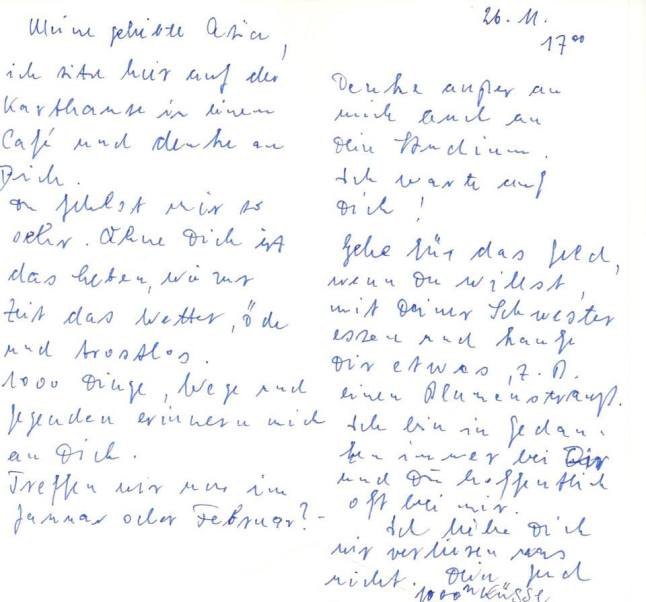 26. 11.
17⁰⁰
Meine geliebte Asia,
ich sitze hier auf der
Karthause in einem
Café und denke an
Dich.
Du fehlst mir so
sehr. Ohne Dich ist
das Leben, wie zur
Zeit das Wetter, öde
und trostlos.
1000 Dinge, Wege und
Gegenden erinnern mich
an Dich.
Treffen wir uns im
Januar oder Februar? -
Denke außer an
mich auch an
Dein Studium.
Ich warte auf
Dich!
Gehe für das Geld,
wenn Du willst,
mit Deiner Schwester
essen und kaufe
Dir etwas, z. B.
einen Blumenstrauß.
Ich bin in Gedan-
ken immer bei Dir
und Du hoffentlich
oft bei mir.
Ich liebe Dich
wir verlieren uns
nicht. Dein
1000 Küsse.